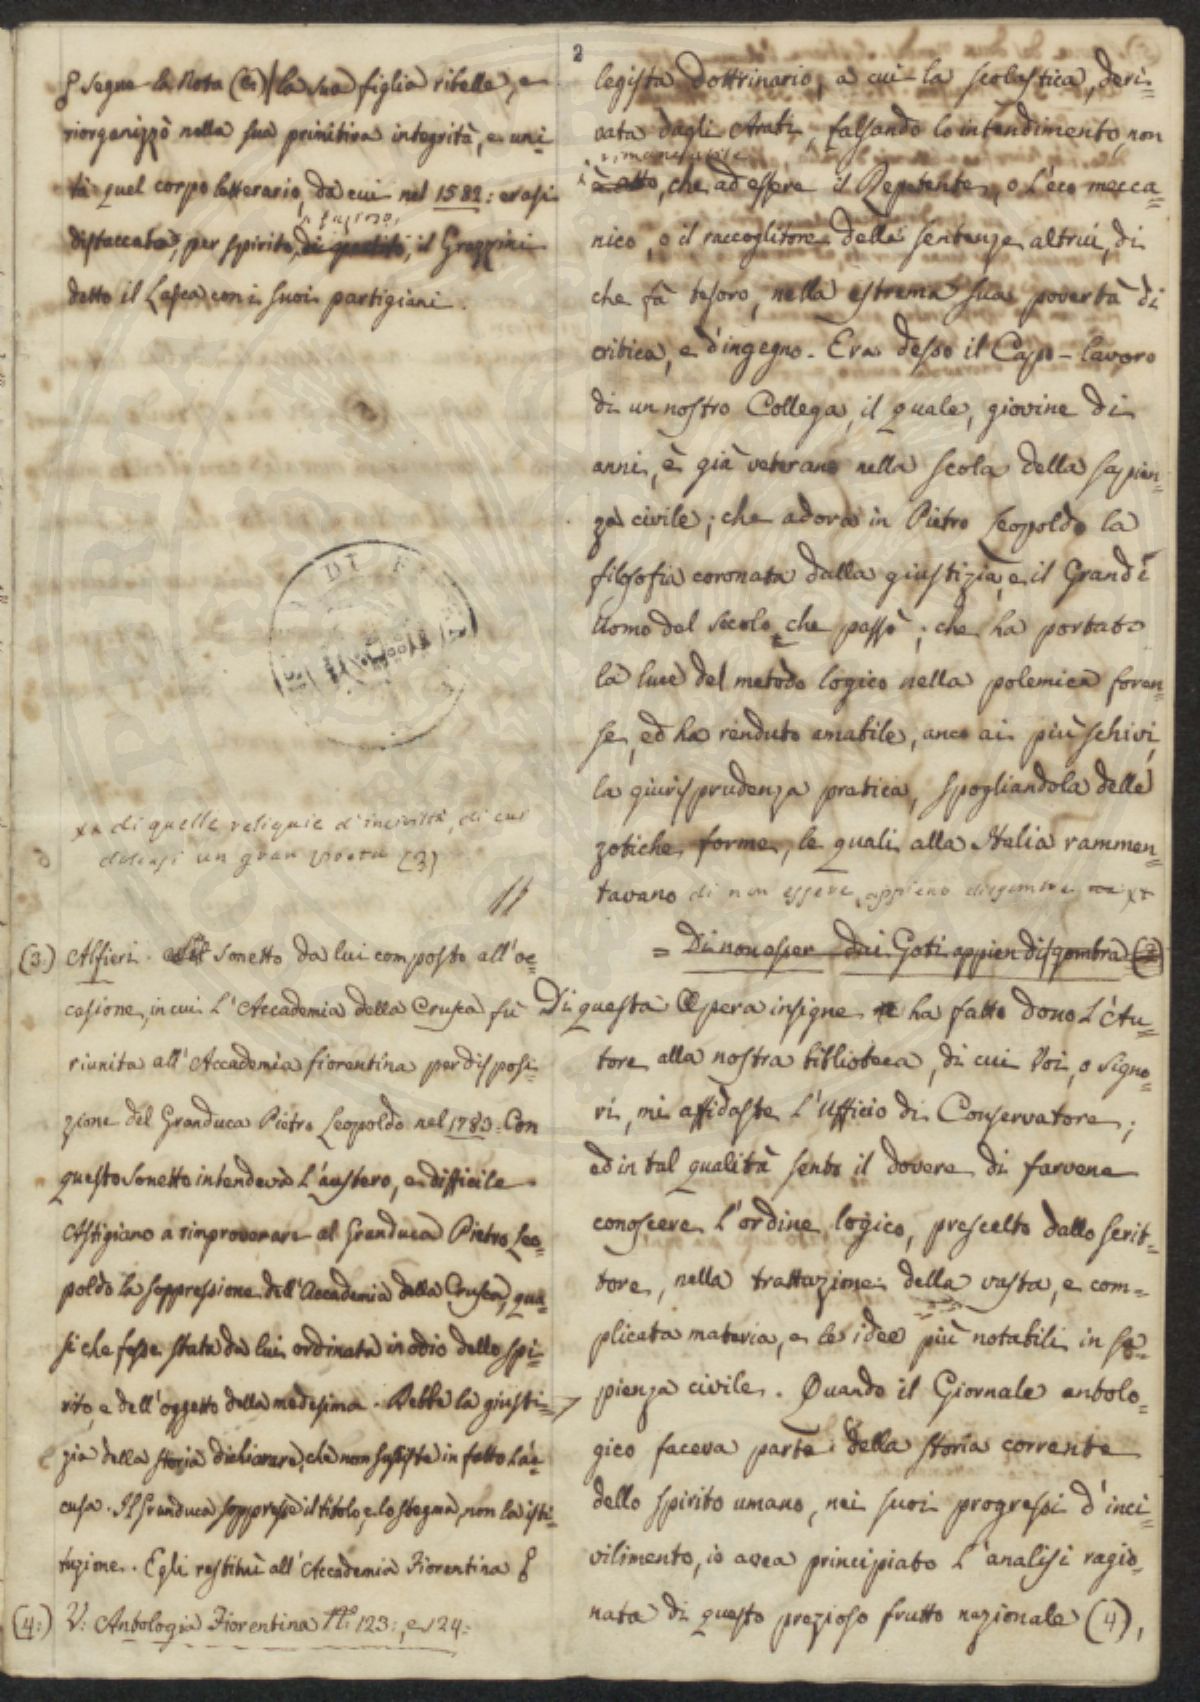 2
§ Segue la Nota (3) la sua figlia ribelle, e
riorganizzò nella sua primitiva integrità, e uni=
tà quel corpo letterario, da cui nel 1582: erasi
distaccato, per spirito, di partito, il Grazzini
detto il Lasca con i suoi partigiani.
DI F
xx di quelle reliquie d'inciviltà, di cui
doleasi un gran Poeta (3)
(3.) Alfieri. Sonetto da lui composto all'oc=
casione, in cui L'Accademia della Crusca fù
riunita all'Accademia fiorentina per disposi=
zione del Granduca Pietro Leopoldo nel 1783. Con
questo Sonetto intendeva L'austero, e difficile
Astigiano a rimproverare al Granduca Pietro Leo=
poldo la soppressione dell'Accademia della Crusca, qua=
si che fosse stata da lui ordinata in odio dello spi=
rito, e dell'oggetto della medesima. Debbe la giusti=
zia della storia dichiarare, che non sussiste in fatto L'ac=
cusa. Il Granduca soppresse il titolo, e lo stegma, non la isti=
tuzione. Egli restituì all'Accademia Fiorentina §
(4:) V: Antologia Fiorentina No: 123:, e 124:
legista dottrinario, a cui la scolastica, deri=
vata dagli Arabi, falsando lo intendimento, non
è atto, che ad essere il Repetente, o L'eco mecca=
nico, o il raccoglitore delle sentenze altrui, di
che fà tesoro, nella estrema sua povertà di
critica, e d'ingegno. Era desso il Capo-lavoro
di un nostro Collega, il quale, giovine di
anni, è già veterano nella scola della sapien=
za civile; che adora in Pietro Leopoldo la
filosofia coronata dalla giustizia, e il Grand'
Uomo del secolo, che passò; che ha portato
la luce del metodo logico nella polemica foren=
se, ed ha renduto amabile, anco ai più schivi,
la giurisprudenza pratica, spogliandola delle
zotiche forme, le quali alla Italia rammen=
tavano di non essere appieno disgombra xx
= Di non esser dai Goti appien disgombra (3)
Di questa Opera insigne ha fatto dono L'Au=
tore alla nostra biblioteca, di cui Voi, o Signo=
ri, mi affidaste L'Ufficio di Conservatore;
ed in tal qualità sento il dovere di farvene
conoscere L'ordine logico, prescelto dallo Scrit=
tore, nella trattazione della vasta, e com=
plicata materia, e le idee più notabili in sa=
pienza civile. Quando il Giornale antolo=
gico faceva parte della storia corrente
dello spirito umano, nei suoi progressi d'inci=
vilimento, io avea principiato L'analisi ragio=
nata di questo prezioso frutto nazionale (4),